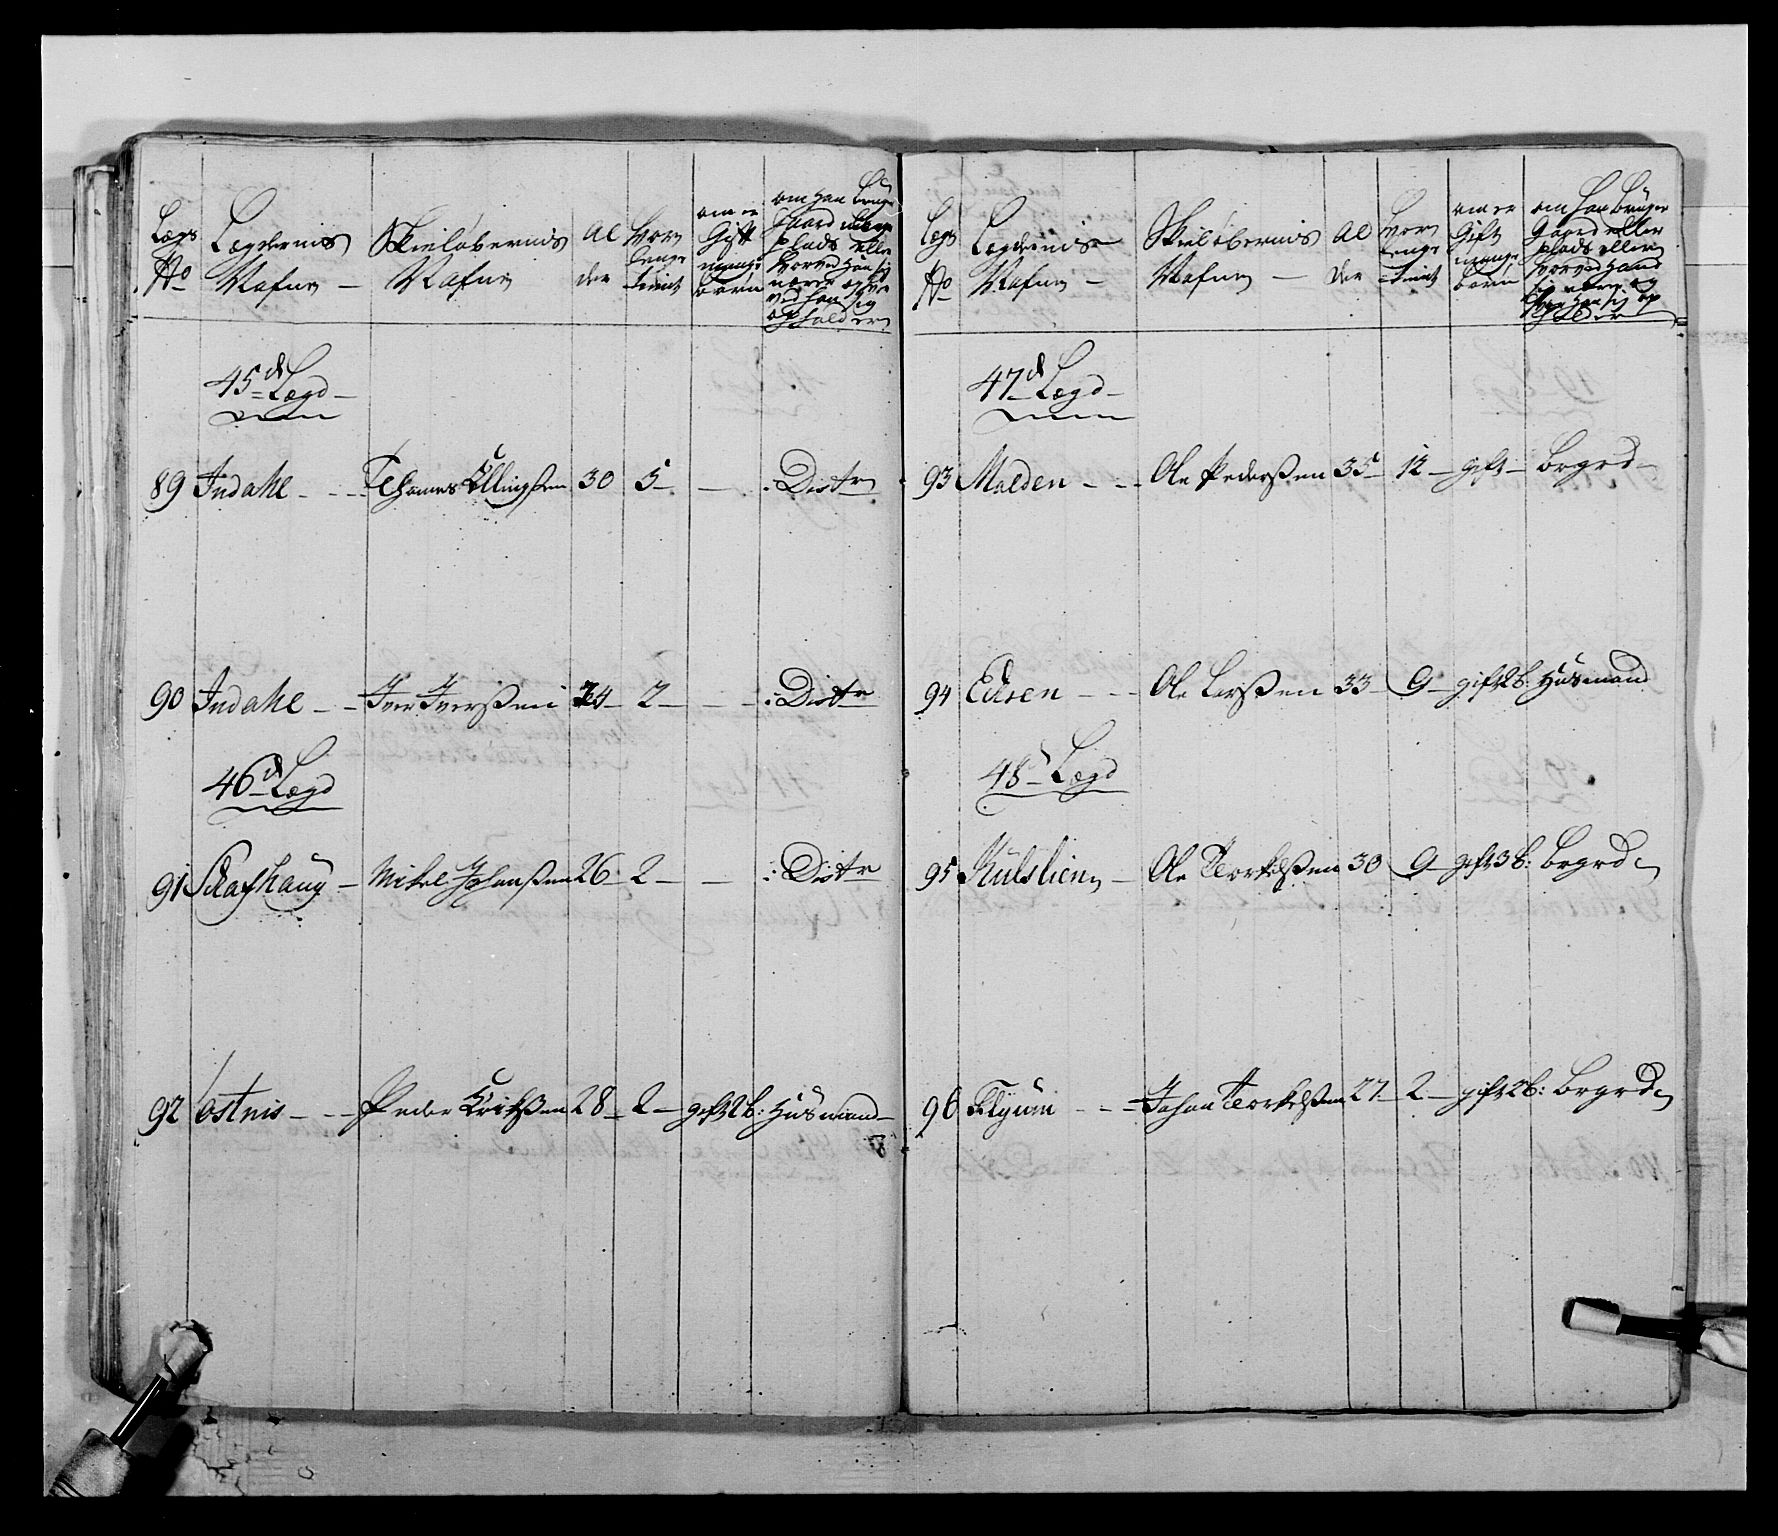 Legs No
Legdernis Nafne —
Skieløbernis Nafne
Al der
Hvor lenge tient
om er Gift mange børn
om han bruger Gaard eller plads eller hvorved han sig nærer og hvor ved han sig opholder
45d Lægd —
89 Indahl — Thomas Ellingsen 30 5 — — Distr
90 Indahl — Iver Iverssen 24 — 2 — — Distr
46d Lægd
91 Skafhaug — Mikel Johanssen 26 2 — — Distr
92 Østnis — Peder Erichssen 28 — 2 — gift 2 b: Huusmand —
Legs No
Legdernis Nafne —
Skieløbernis Nafne —
Al der
Hvor lenge tient
om er Gift mange børn
om han bruger Gaard eller plads eller hvorved hand sig nærer og hvor han sig op holder
47d Lægd —
93 Molden — Ole Pederssen 35 — 12 — gift — brgrd —
94 Edsen — Ole Larssen 33 — 9 — gift 2 b: Huusmand
48d Lægd
95 Kulslien — Ole Torkelssen 30 9 — gift 3 b: brgrd
96 Flyum — Johan Torkelssen 27 — 2 — gift 2 b: brgrd